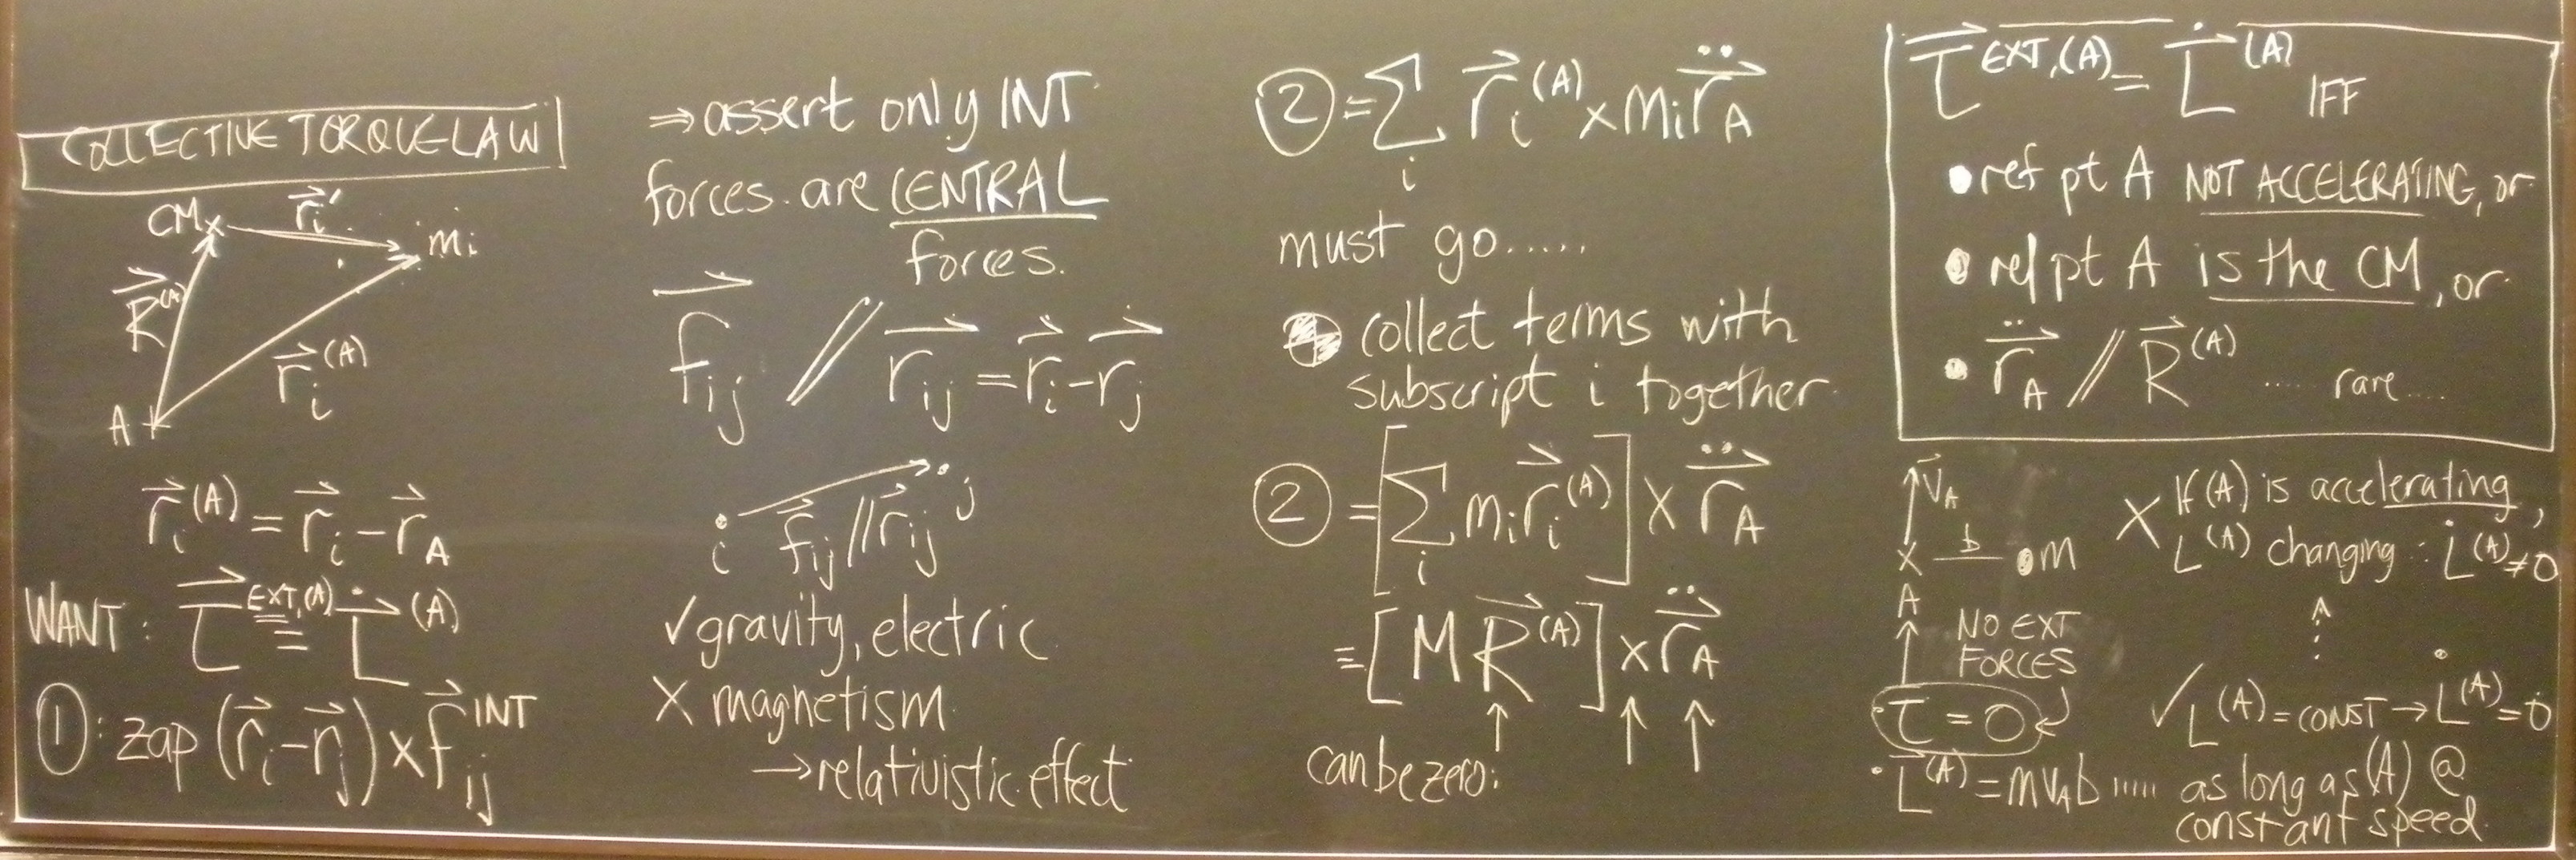 COLLECTIVE TORQUE LAW
CM x
r⃗ᵢ′
mᵢ
R⃗⁽ᴬ⁾
r⃗ᵢ⁽ᴬ⁾
A +
r⃗ᵢ⁽ᴬ⁾ = r⃗ᵢ - r⃗_A
WANT: τ⃗^{EXT,(A)} = L⃗̇⁽ᴬ⁾
①: zap (r⃗ᵢ - r⃗ⱼ) × f⃗ᵢⱼ^{INT}
⇒ assert only INT
forces are CENTRAL
forces.
f⃗ᵢⱼ // r⃗ᵢⱼ = r⃗ᵢ - r⃗ⱼ
i j
f⃗ᵢⱼ // r⃗ᵢⱼ
✓ gravity, electric
X magnetism
→ relativistic effect
② = Σᵢ r⃗ᵢ⁽ᴬ⁾ × mᵢ r⃗̈_A
must go.....
collect terms with
subscript i together
② = [Σᵢ mᵢ r⃗ᵢ⁽ᴬ⁾] × r⃗̈_A
= [M R⃗⁽ᴬ⁾] × r⃗̈_A
↑ ↑ ↑
can be zero:
τ⃗^{EXT,(A)} = L⃗̇⁽ᴬ⁾ IFF
• ref pt A NOT ACCELERATING, or
• ref pt A is the CM, or
• r⃗̈_A // R⃗⁽ᴬ⁾ ..... rare....
↑ v⃗_A
x b m
A
↑
NO EXT
FORCES
• τ = 0
• L⃗⁽ᴬ⁾ = m v_A b ..... as long as (A) @
constant speed
X If (A) is accelerating,
L⁽ᴬ⁾ changing ∴ L̇⁽ᴬ⁾ ≠ 0
✓ L⁽ᴬ⁾ = CONST → L̇⁽ᴬ⁾ = 0